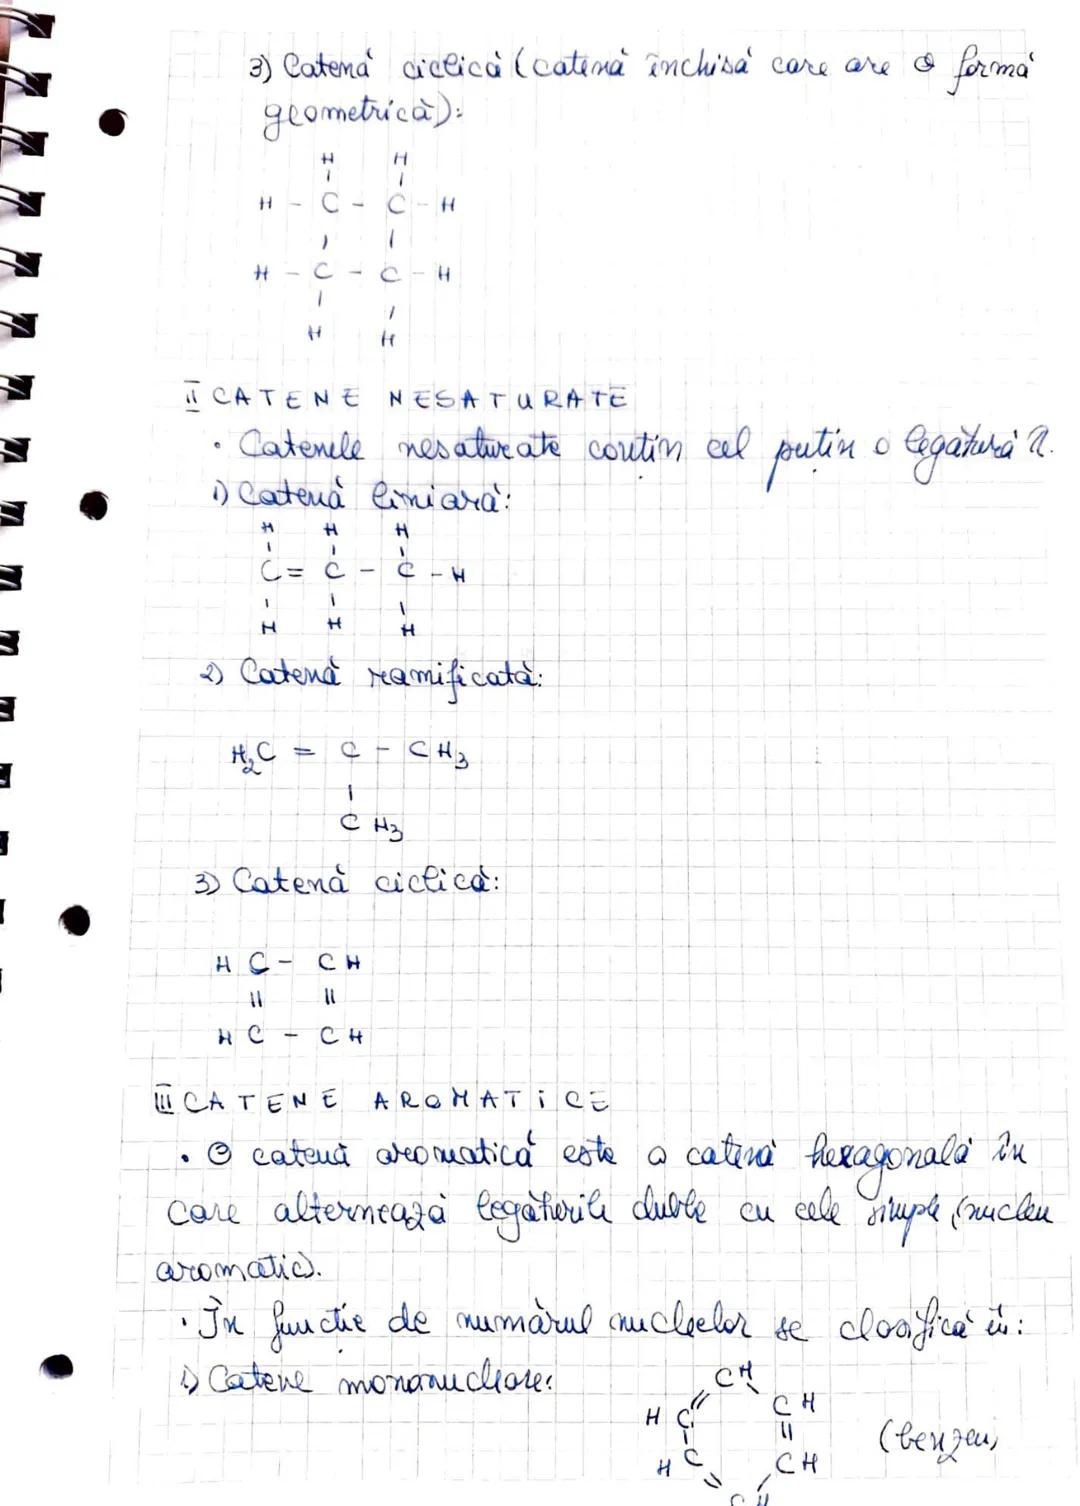 3) Catenă ciclică (catenă închisă care are o formă
geometrică):
H H
H - C - C - H
H - C - C - H
H H
II CATENE NESATURATE
• Catenele nesaturate conțin cel puțin o legătură π.
1) Catenă liniară:
H H H
C = C - C - H
H H H
2) Catenă ramificată:
H₂C = C - CH₃
CH₃
3) Catenă ciclică:
HC - CH
|| ||
HC - CH
III CATENE AROMATICE
• O catenă aromatică este o catenă hexagonală în
care alternează legăturile duble cu cele simple (nucleu
aromatic).
• În funcție de numărul nucleelor se clasifică în:
1) Catene mononucleare:
CH
HC CH
HC CH
CH
(benzen)